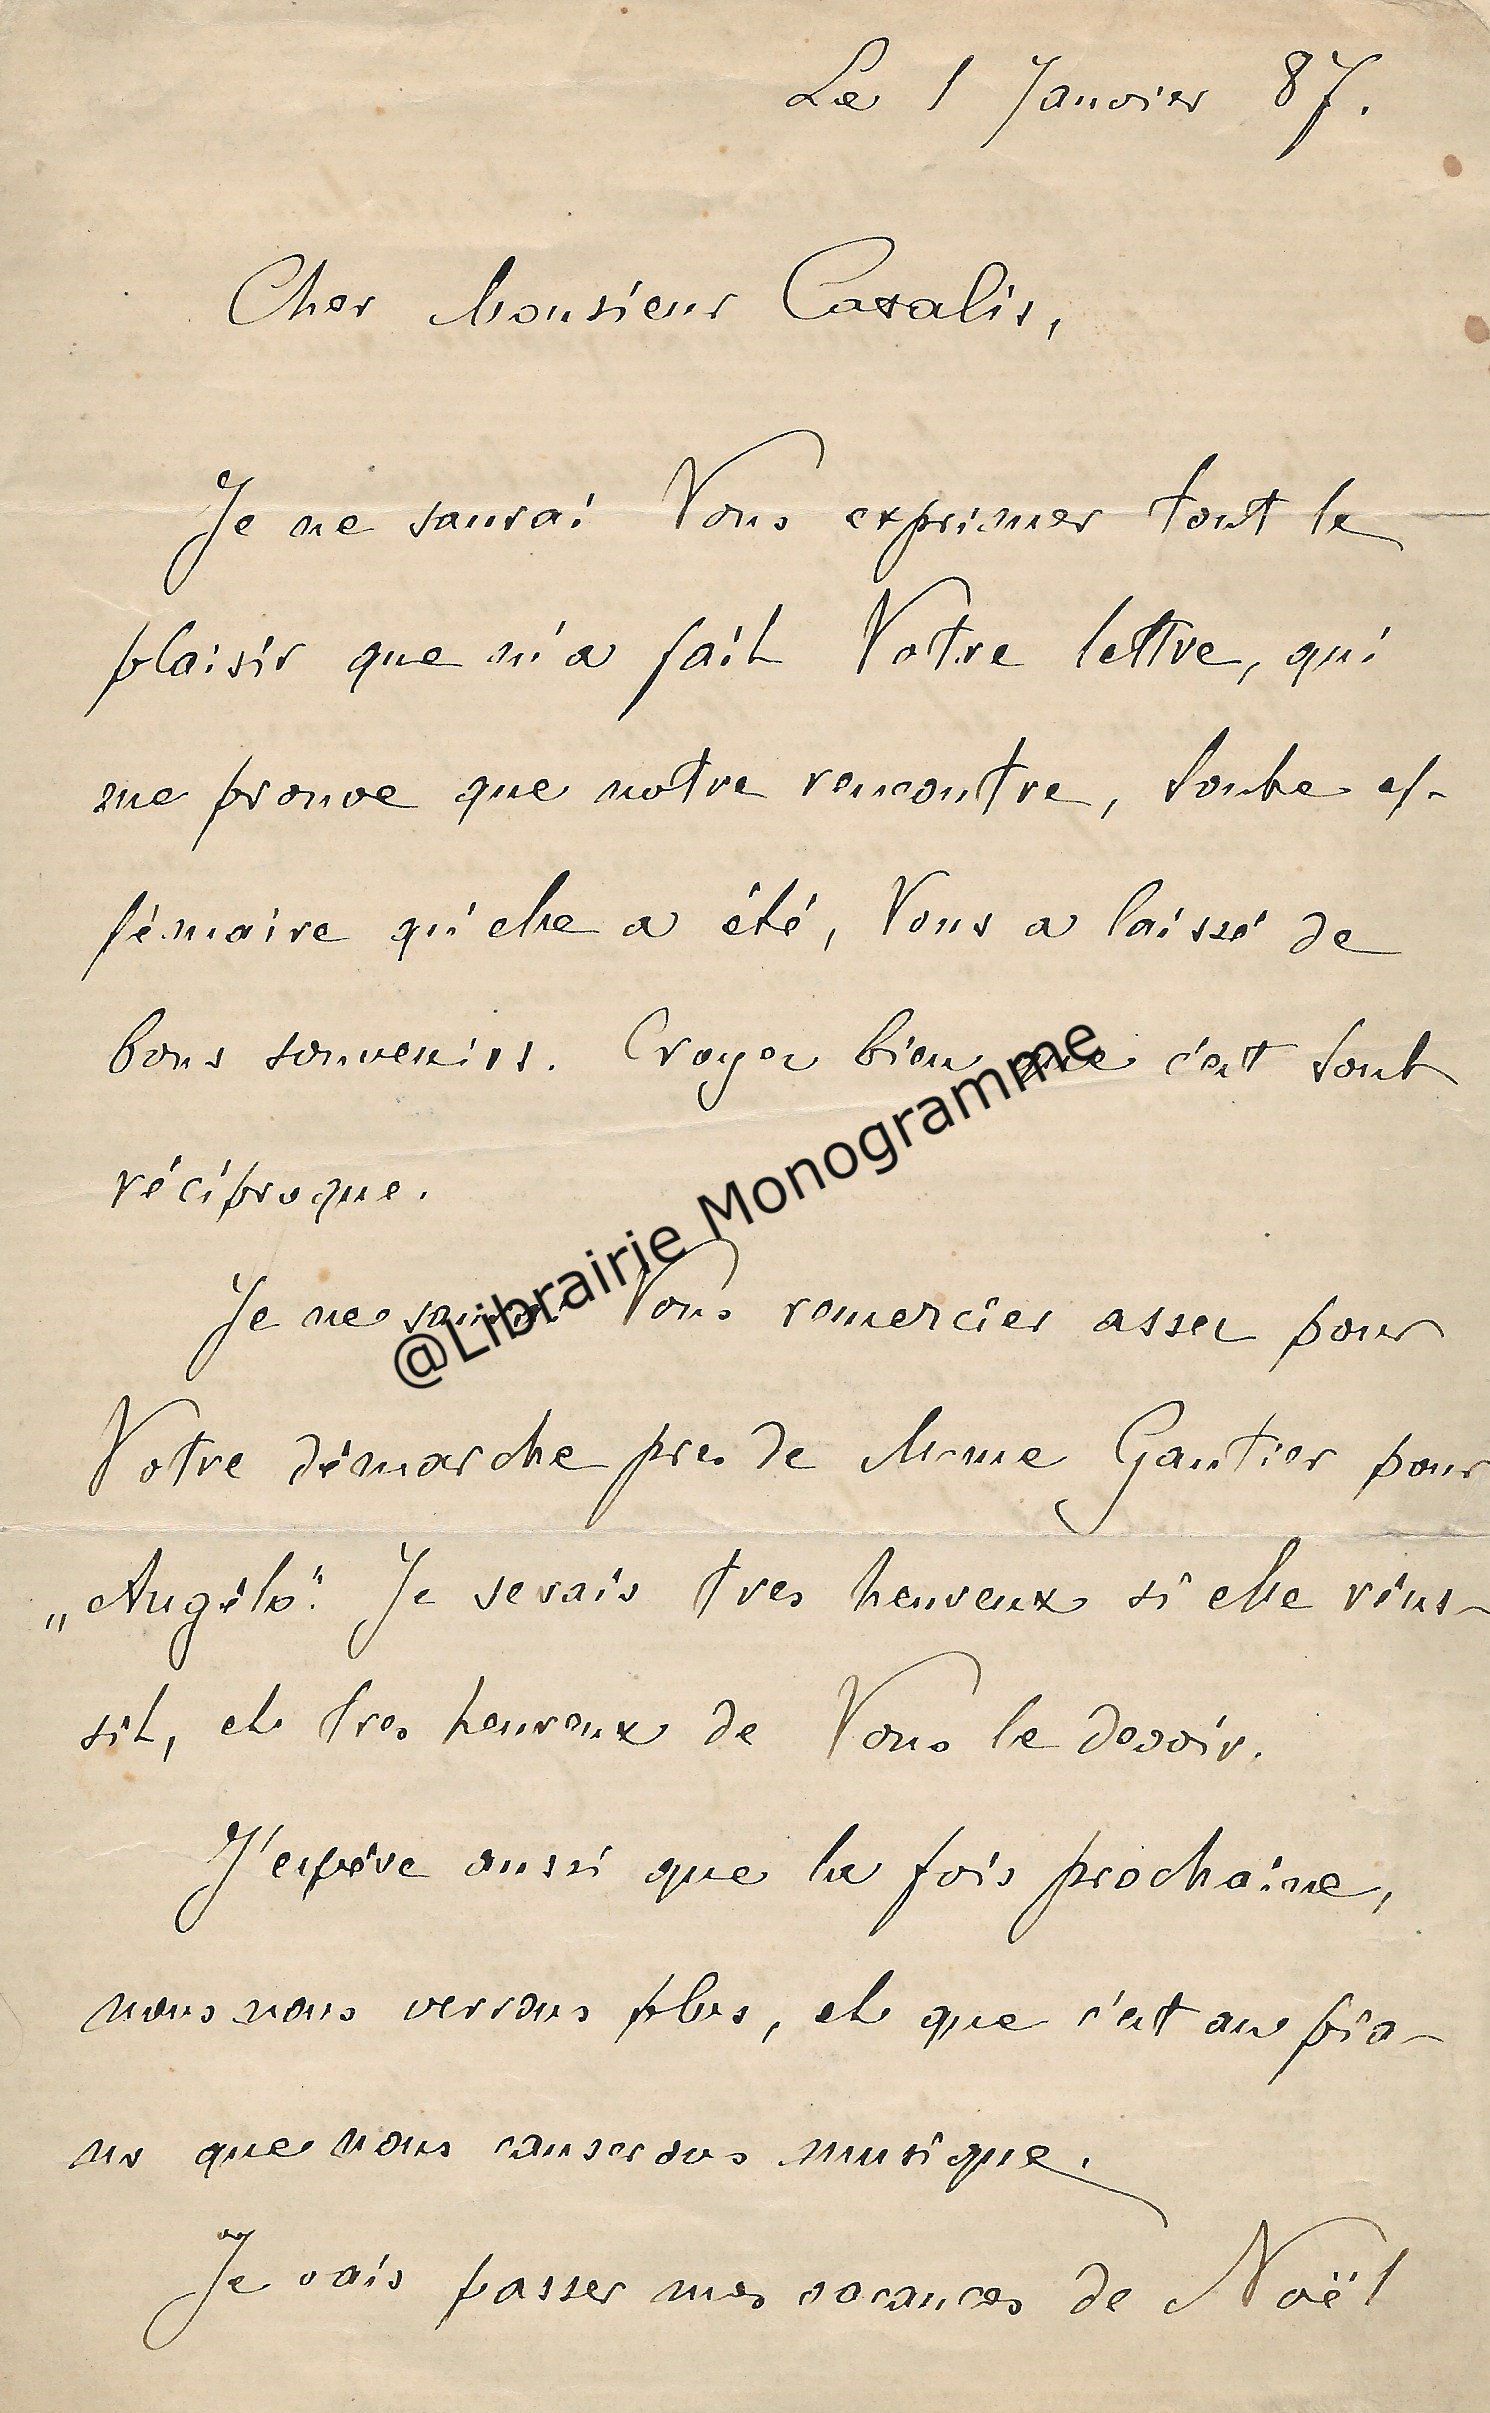 Le 1 Janvier 87.
Cher Monsieur Cazalis,
Je ne saurai Vous exprimer tout le
plaisir que m'a fait Votre lettre, qui
me prouve que notre rencontre, toute ef-
fémaire qu'elle a été, Vous a laissé de
bons souvenirs. Croyez bien que c'est tout
réciproque.
@Librairie Monogramme
Je ne saurai Vous remercier assez pour
Votre démarche pres de Mme Gautier pour
„Angélo". Je serais tres heureux si elle réus-
sit, et tres heureux de Vous le devoir.
J'espère aussi que la fois prochaine,
nous nous verrons plus, et que c'est au pia-
no que nous causerons musique.
Je vais passer mes vacances de Noël